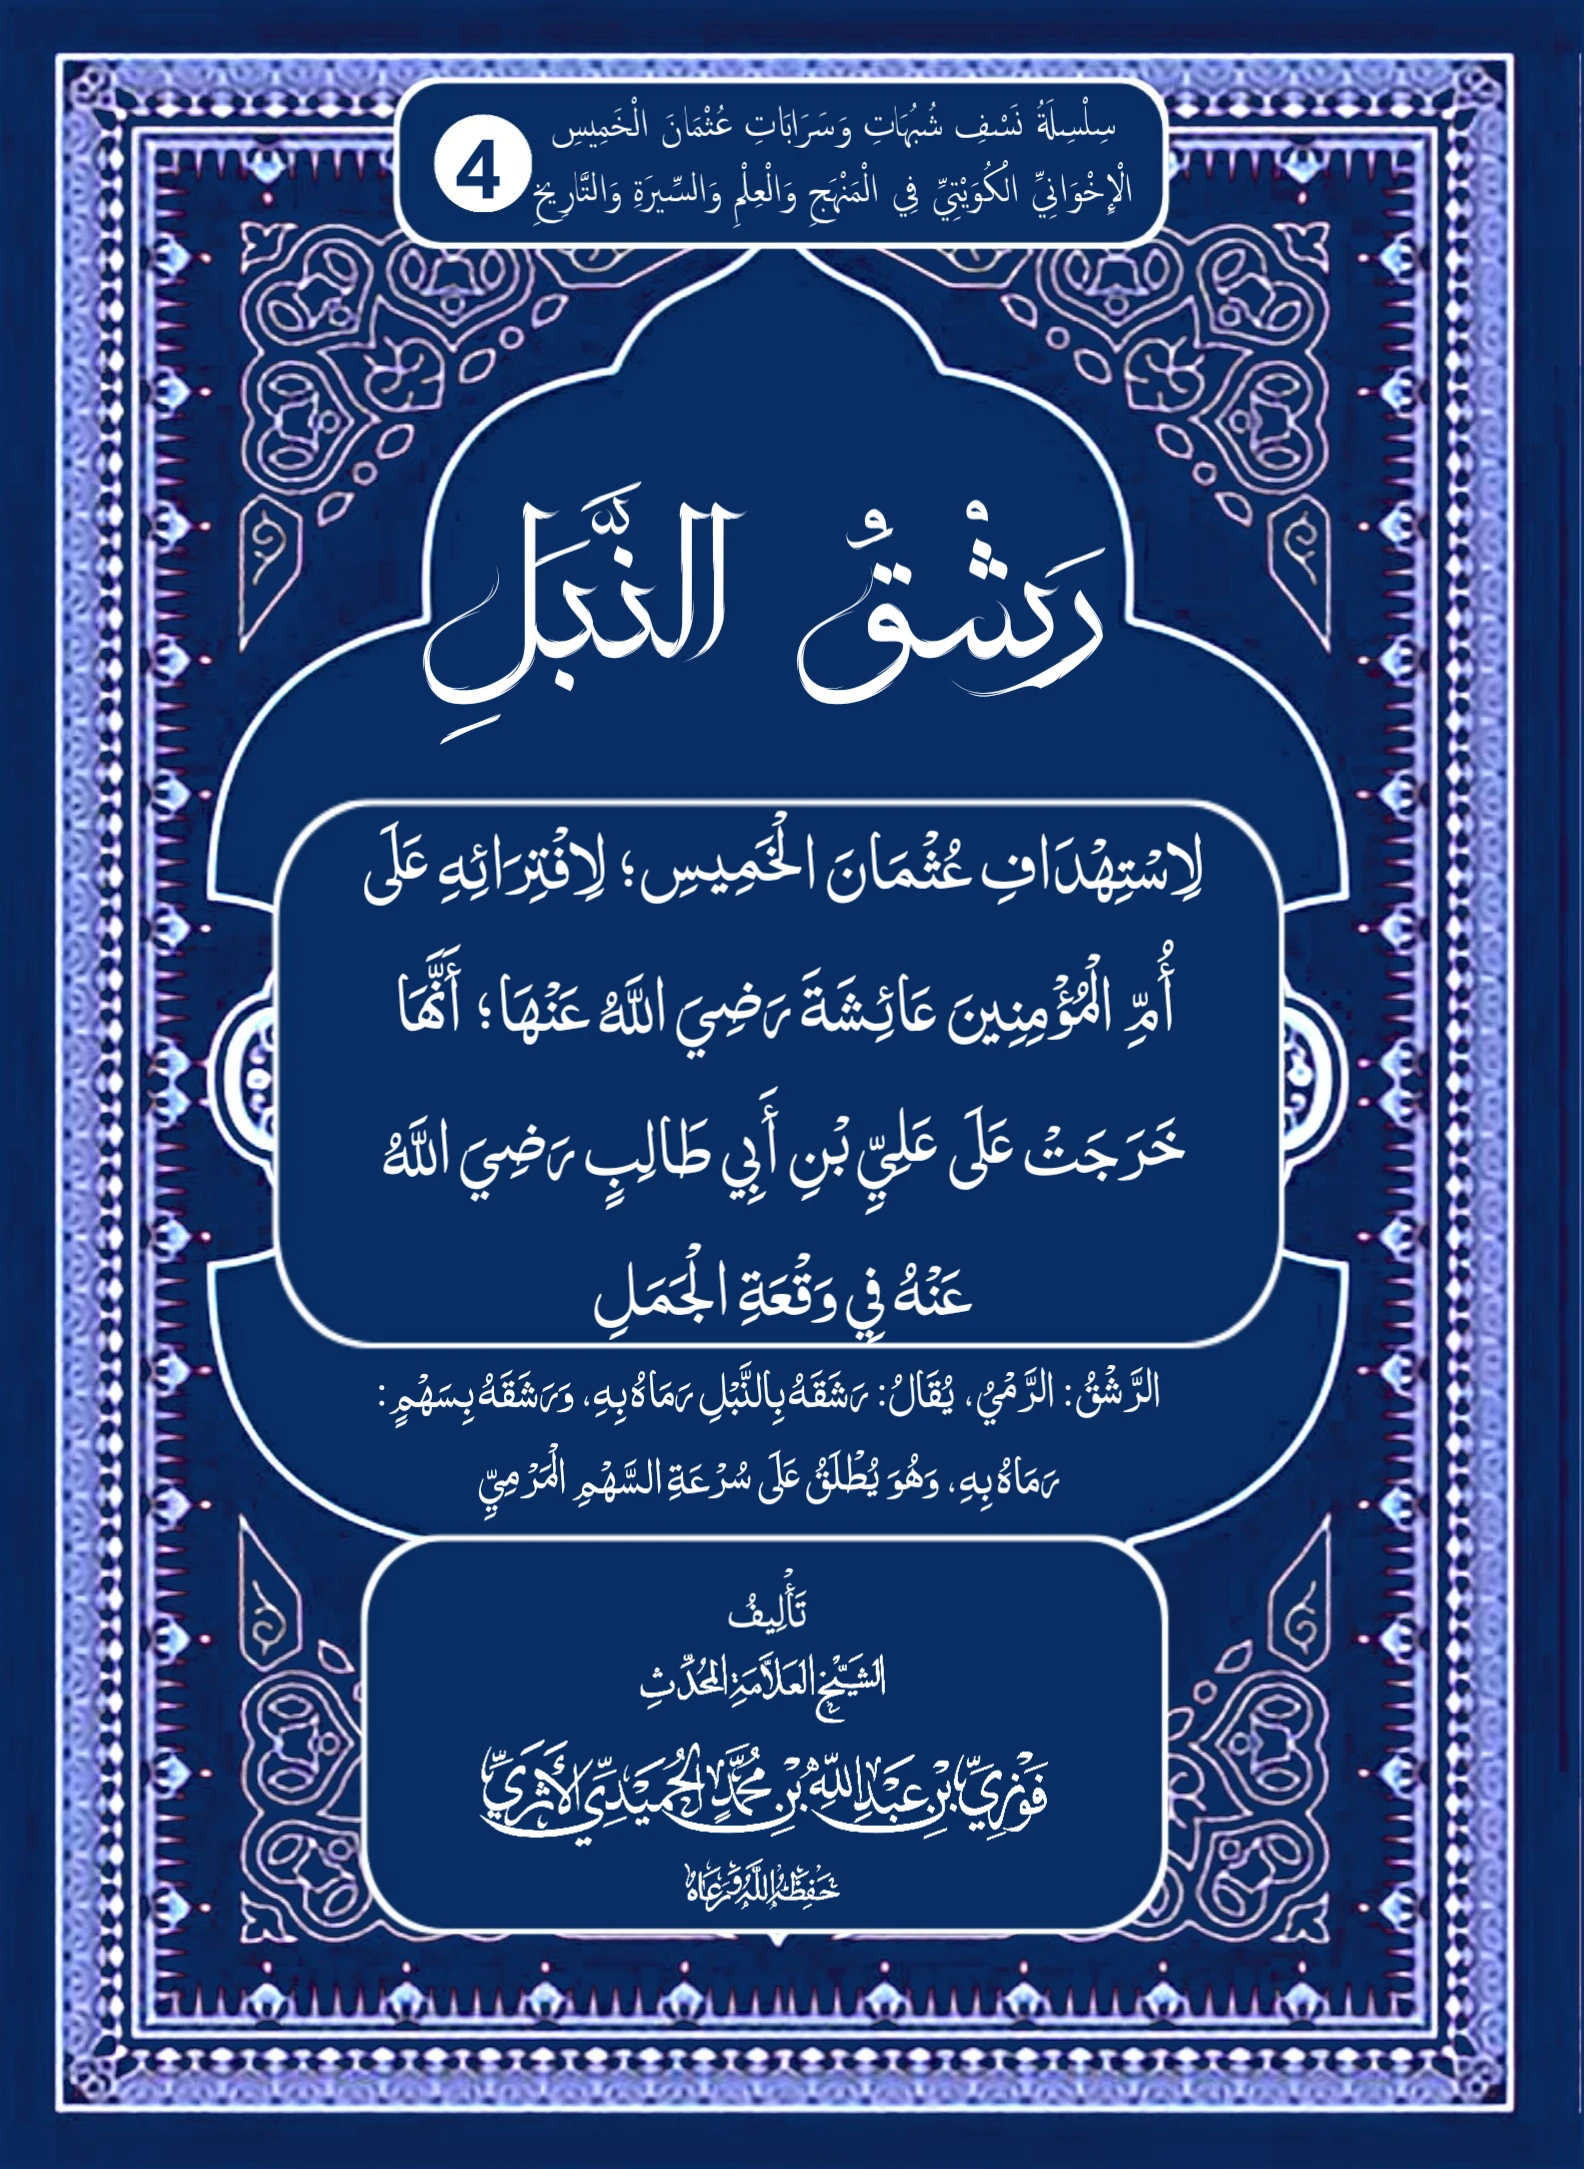 سِلْسِلَةُ نَسْفِ شُبُهَاتِ وَسَرَابَاتِ عُثْمَانَ الْخَمِيسِ
الْإِخْوَانِيِّ الْكُوَيْتِيِّ فِي الْمَنْهَجِ وَالْعِلْمِ وَالسِّيرَةِ وَالتَّارِيخِ
4
رَشْقُ النَّبَلِ
لِاسْتِهْدَافِ عُثْمَانَ الْخَمِيسِ؛ لِافْتِرَائِهِ عَلَى
أُمِّ الْمُؤْمِنِينَ عَائِشَةَ رَضِيَ اللَّهُ عَنْهَا؛ أَنَّهَا
خَرَجَتْ عَلَى عَلِيِّ بْنِ أَبِي طَالِبٍ رَضِيَ اللَّهُ
عَنْهُ فِي وَقْعَةِ الْجَمَلِ
الرَّشْقُ: الرَّمْيُ، يُقَالُ: رَشَقَهُ بِالنَّبْلِ رَمَاهُ بِهِ، وَرَشَقَهُ بِسَهْمٍ:
رَمَاهُ بِهِ، وَهُوَ يُطْلَقُ عَلَى سُرْعَةِ السَّهْمِ الْمَرْمِيِّ
تَأْلِيفُ
الشَّيْخِ العَلَّامَةِ المُحَدِّثِ
فَوْزِيِّ بْنِ عَبْدِ اللَّهِ بْنِ مُحَمَّدٍ الحُمَيْدِيِّ الأَثَرِيِّ
حَفِظَهُ اللَّهُ وَرَعَاهُ